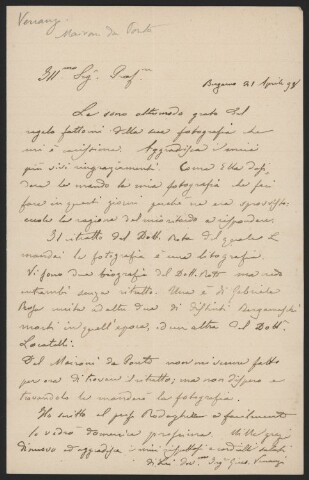 Venanzi
Maironi da Ponte
Ill.mo Sig. Prof.
Bergamo 21 Aprile 98
Le sono oltremodo grato del
regalo fattomi della sua fotografia che
mi è carissima. Aggradisca i miei
più vivi ringraziamenti. Come Ella desi-
dera le mando la mia fotografia che feci
fare in questi giorni perchè ne era sprovvisto,
ecco la ragione del mio ritardo a rispondere.
Il ritratto del Dott. Rota del quale Le
mandai la fotografia è una litografia.
Vi sono due biografie del Dott. Rota ma
senza ritratto. Una è di Gabriele
Rosa unita ad altre due di distinti Bergamaschi
morti in quell'epoca, ed un'altra del Dott.
Locatelli.
Del Maironi da Ponte non mi venne fatto
per ora di trovare il ritratto, ma non dispero e
trovandolo le manderò la fotografia.
Ho scritto al prof. e facilmente
lo vedrò domenica prossima. Mille grazie
di nuovo ed aggradisca i miei rispettosi e cordiali saluti
di Lei Dev.mo Ing. Gius. Venanzi